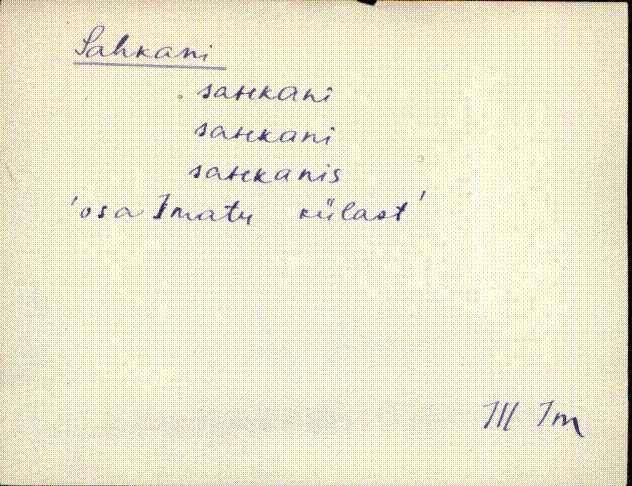 Sahkani
saʜkani
saʜkani
saʜkanis
'osa Imatu külast'
III Im